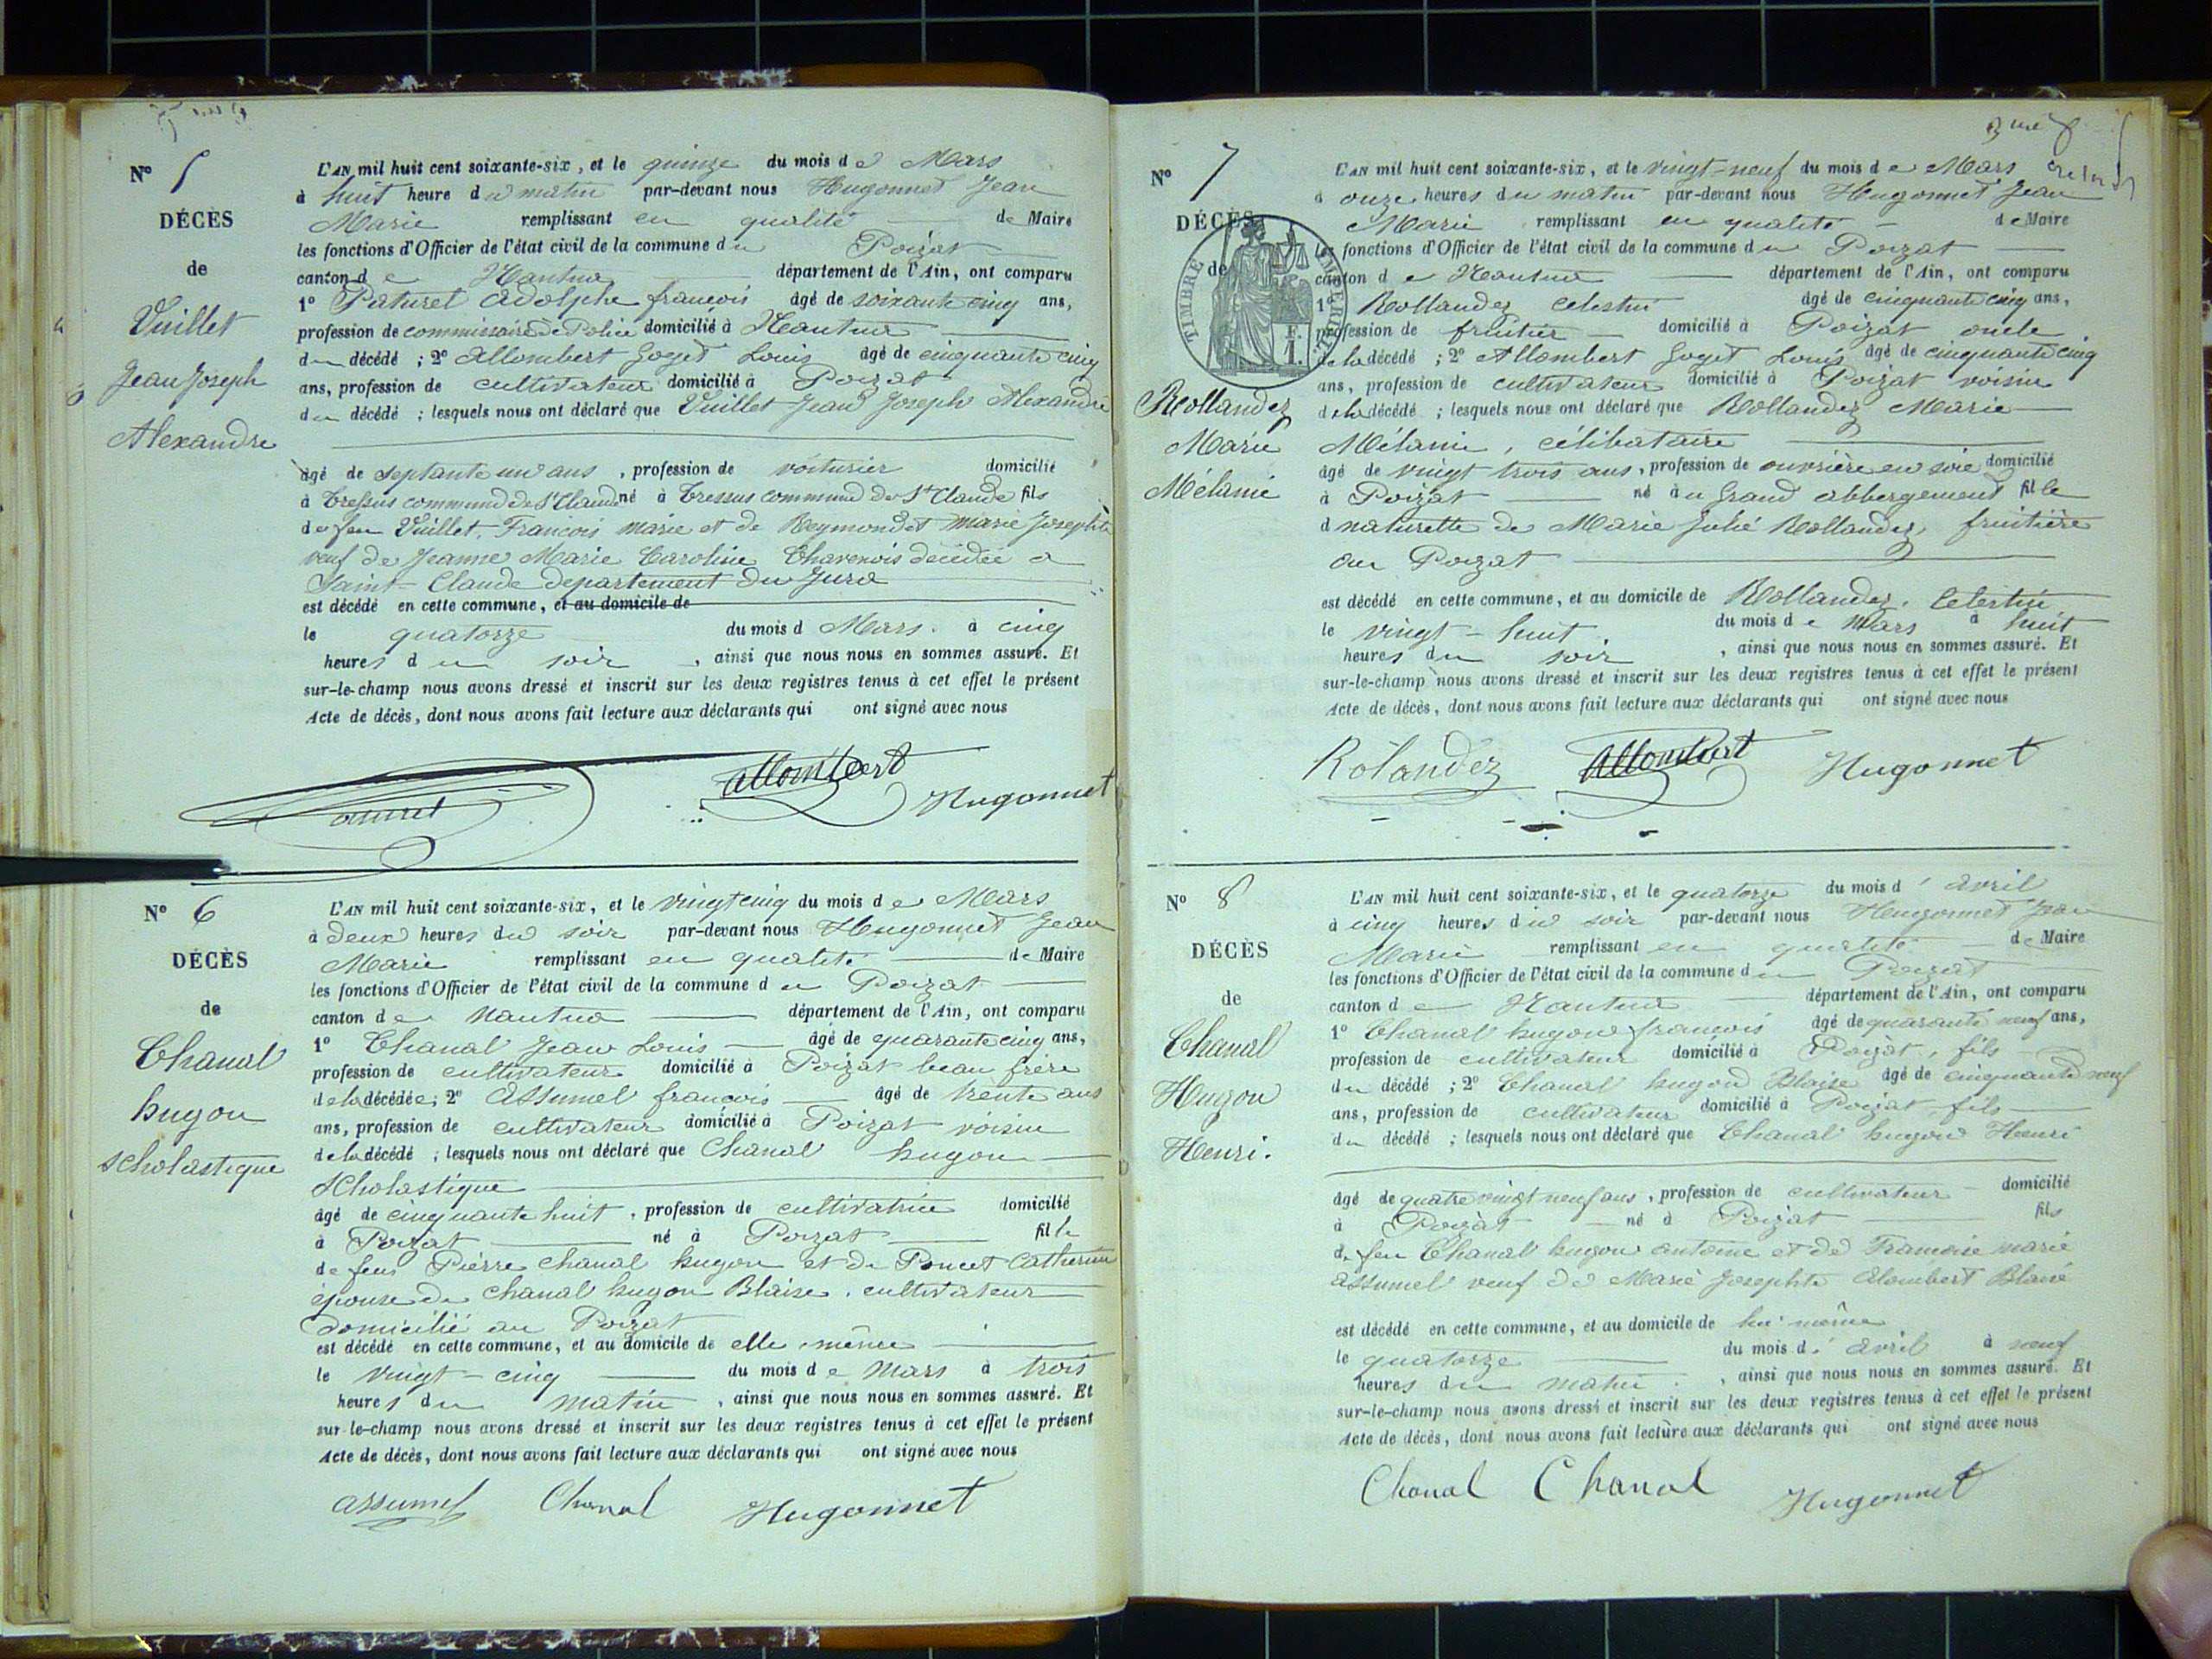 Nº 5
DÉCÈS
de
Vuillet
Jean Joseph
Alexandre
L'AN mil huit cent soixante-six, et le quinze du mois de Mars
à huit heure du matin par-devant nous Hugonnet Jean
Marie remplissant en qualité de Maire
les fonctions d'Officier de l'état civil de la commune du Poizat
canton de Nantua département de l'Ain, ont comparu
1º Paturel Adolphe françois âgé de soixante cinq ans,
profession de commissaire de Police domicilié à Nantua
du décédé ; 2º Allombert Goget Louis âgé de cinquante cinq
ans, profession de cultivateur domicilié à Poizat
du décédé ; lesquels nous ont déclaré que Vuillet Jean Joseph Alexandre
âgé de septante un ans, profession de voiturier domicilié
à Tressus commune de St Claude né à Tressus commune de St Claude fils
de feu Vuillet François Marie et de Reymondet Marie Josephte
veuf de Jeanne Marie Caroline Chavenois décédée a
Saint-Claude département du Jura
est décédé en cette commune, et au domicile de
le quatorze du mois d Mars. à cinq
heures du soir, ainsi que nous nous en sommes assuré. Et
sur-le-champ nous avons dressé et inscrit sur les deux registres tenus à cet effet le présent
Acte de décès, dont nous avons fait lecture aux déclarants qui ont signé avec nous
Allombert Hugonnet
Nº 6
DÉCÈS
de
Chanal
hugon
scholastique
L'AN mil huit cent soixante-six, et le vingt cinq du mois de Mars
à deux heures du soir par-devant nous Hugonnet Jean
Marie remplissant en qualité de Maire
les fonctions d'Officier de l'état civil de la commune du Poizat
canton de Nantua département de l'Ain, ont comparu
1º Chanal Jean Louis âgé de quarante cinq ans,
profession de cultivateur domicilié à Poizat beau frère
de la décédée; 2º Assumel françois âgé de trente ans
ans, profession de cultivateur domicilié à Poizat voisin
de la décédé ; lesquels nous ont déclaré que Chanal hugon
Scholastique
âgé de cinquante huit, profession de cultivatrice domicilié
à Poizat né à Poizat fille
de feus Pierre Chanal hugon et de Poncet Catherine
épouse de Chanal hugon Blaise, cultivateur
domicilié au Poizat
est décédé en cette commune, et au domicile de elle même
le vingt-cinq du mois de Mars à trois
heures du matin, ainsi que nous nous en sommes assuré. Et
sur-le-champ nous avons dressé et inscrit sur les deux registres tenus à cet effet le présent
Acte de décès, dont nous avons fait lecture aux déclarants qui ont signé avec nous
assumel Chanal Hugonnet
Nº 7
DÉCÈS
de
TIMBRE IMPERIAL
1 F.
Rollandez
Marie
Mélanie
L'AN mil huit cent soixante-six, et le vingt-neuf du mois de Mars
à onze heures du matin par-devant nous Hugonnet Jean
Marie remplissant en qualité de Maire
les fonctions d'Officier de l'état civil de la commune du Poizat
canton de Nantua département de l'Ain, ont comparu
1º Rollandez Celestin âgé de cinquante cinq ans,
profession de fruitier domicilié à Poizat oncle
de la décédé ; 2º Allombert Goget Louis âgé de cinquante cinq
ans, profession de cultivateur domicilié à Poizat voisin
de la décédé ; lesquels nous ont déclaré que Rollandez Marie
Mélanie, célibataire
âgé de vingt trois ans, profession de ouvrière en soie domicilié
à Poizat né au Grand abbergement fille
d naturelle de Marie Julie Rollandez, fruitière
au Poizat
est décédé en cette commune, et au domicile de Rollandez, Celestin
le vingt-huit du mois de Mars à huit
heures du soir, ainsi que nous nous en sommes assuré. Et
sur-le-champ nous avons dressé et inscrit sur les deux registres tenus à cet effet le présent
Acte de décès, dont nous avons fait lecture aux déclarants qui ont signé avec nous
Rolandez Allombert Hugonnet
Nº 8
DÉCÈS
de
Chanal
Hugon
Henri.
L'AN mil huit cent soixante-six, et le quatorze du mois d'avril
à cinq heures du soir par-devant nous Hugonnet Jean
Marie remplissant en qualité de Maire
les fonctions d'Officier de l'état civil de la commune du Poizat
canton de Nantua département de l'Ain, ont comparu
1º Chanal hugon françois âgé de quarante neuf ans,
profession de cultivateur domicilié à Poizat, fils
du décédé ; 2º Chanal hugon Blaise âgé de cinquante neuf
ans, profession de cultivateur domicilié à Poizat, fils
du décédé ; lesquels nous ont déclaré que Chanal hugon Henri
âgé de quatre vingt neuf ans, profession de cultivateur domicilié
à Poizat né à Poizat fils
de feu Chanal hugon antoine et de Françoise marie
assumel veuf de Marie Josephte Alombert Blaise
est décédé en cette commune, et au domicile de lui même
le quatorze du mois d'avril à neuf
heures du matin, ainsi que nous nous en sommes assuré. Et
sur-le-champ nous avons dressé et inscrit sur les deux registres tenus à cet effet le présent
Acte de décès, dont nous avons fait lecture aux déclarants qui ont signé avec nous
Chanal Chanal Hugonnet